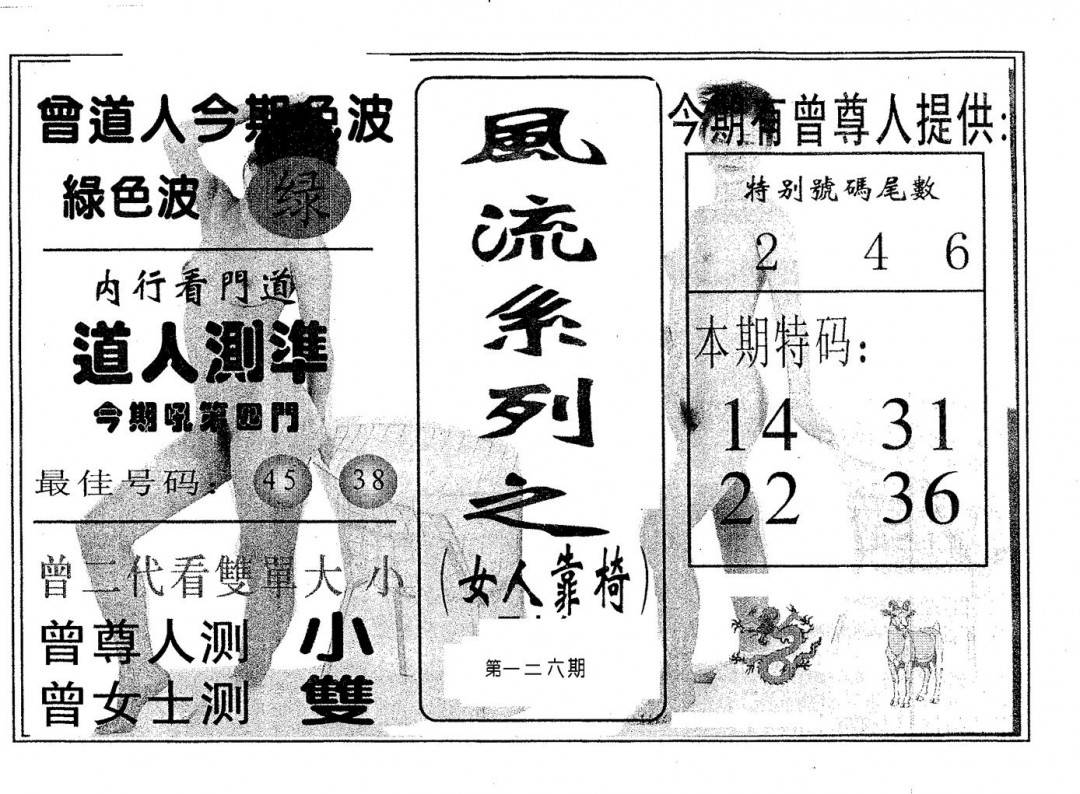 曾道人今期色波
綠色波 绿
内行看門道
道人測準
今期吼第四門
最佳号码: 45 38
曾二代看雙單大小
曾尊人测 小
曾女士测 雙
風流系列之
(女人靠椅)
第一二六期
今期有曾尊人提供:
特别號碼尾數
2 4 6
本期特码:
14 31
22 36